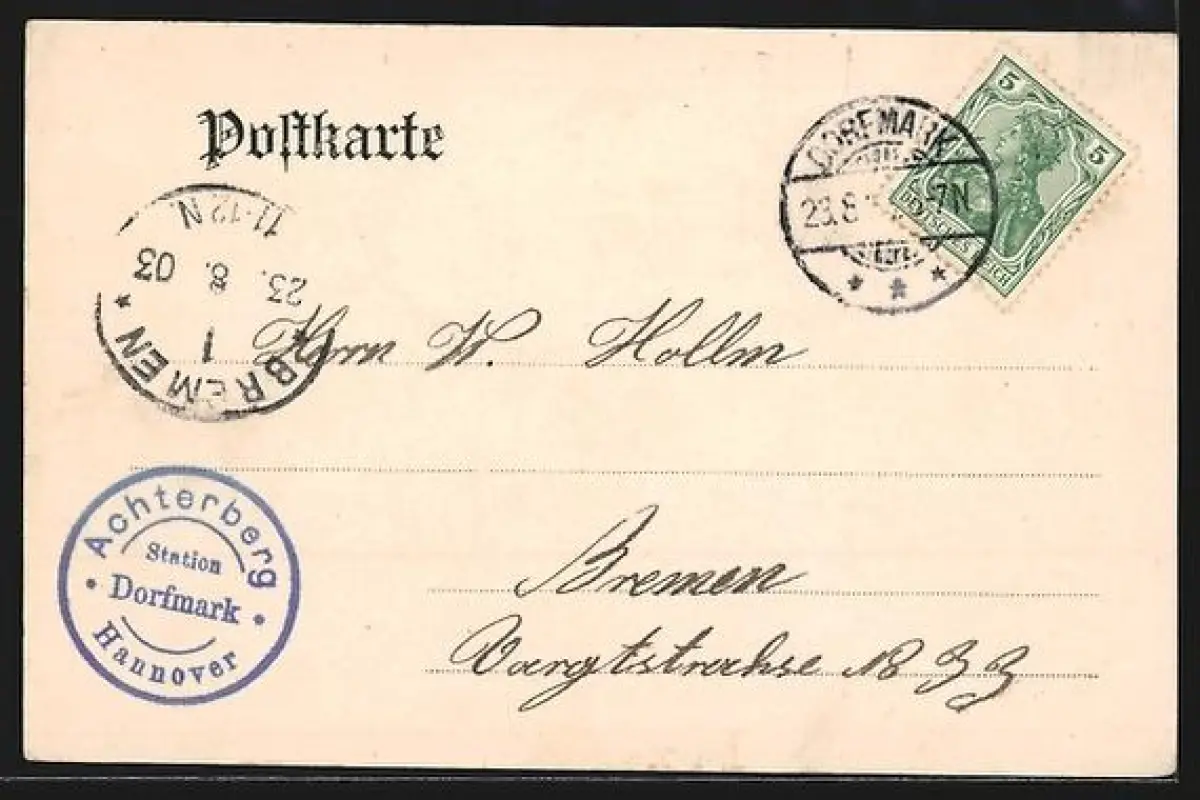 Postkarte
DORFMARK
23.8
-7N
5
5
DEUTSCHES REICH
11-12 N.
23. 8. 03
1
* BREMEN *
Herrn W. Hollm
Bremen
Vargtstrahse No 33
Achterberg
Station
Dorfmark
Hannover